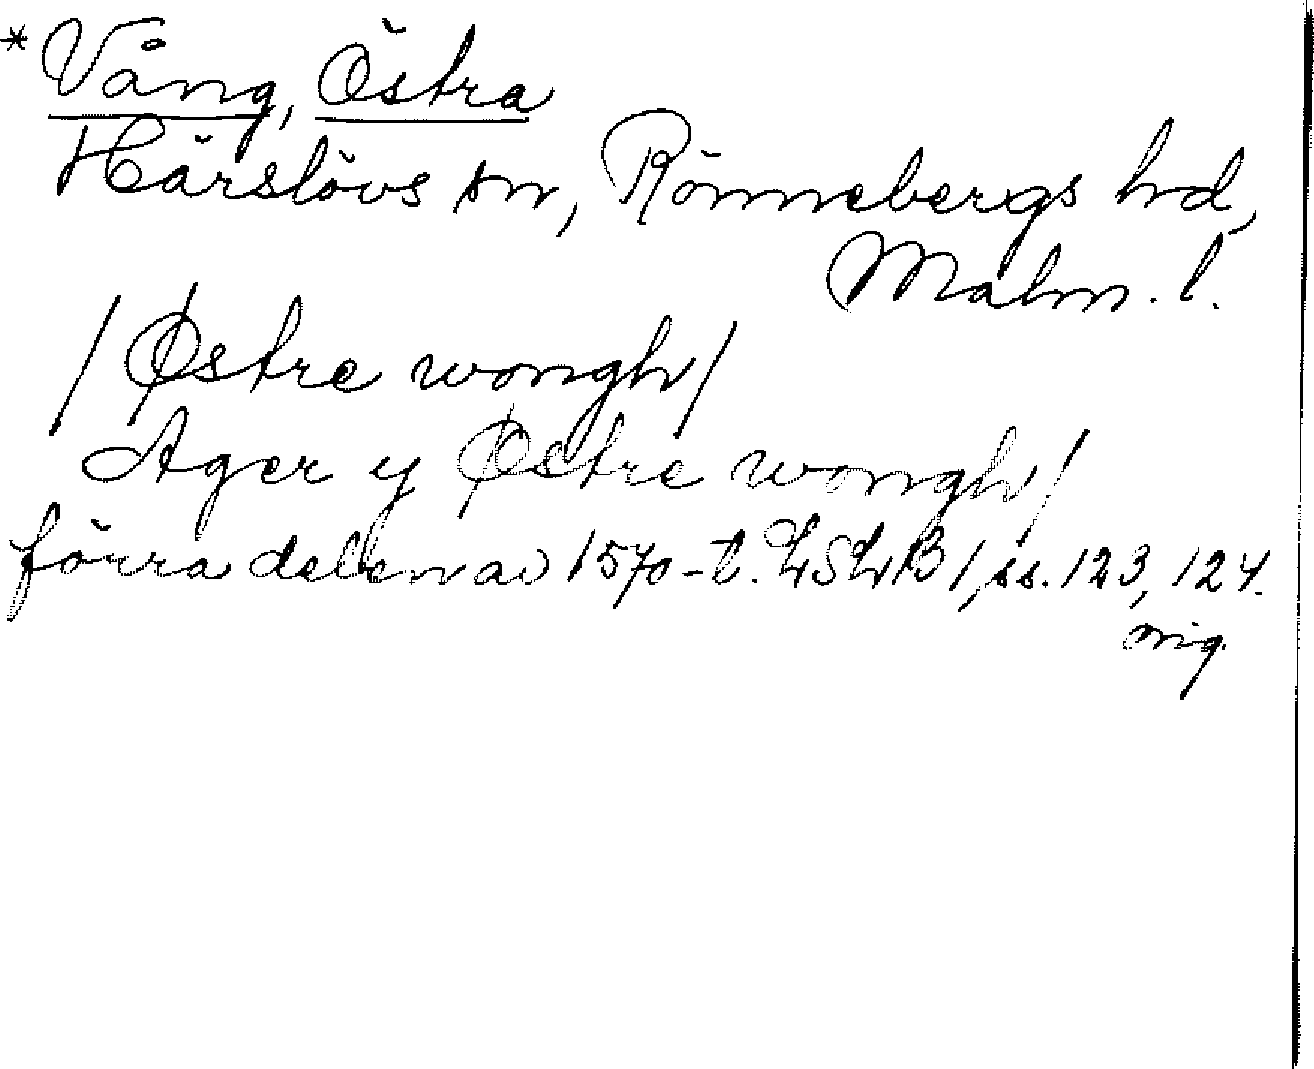 *Vång, Östra
Härslövs sn, Rönnebergs hd,
Malm. l.
/Østre wongh/
Ager y Østre wongh/
förra delen av 1570-t. LSLB 1, ss. 123, 124.
orig.